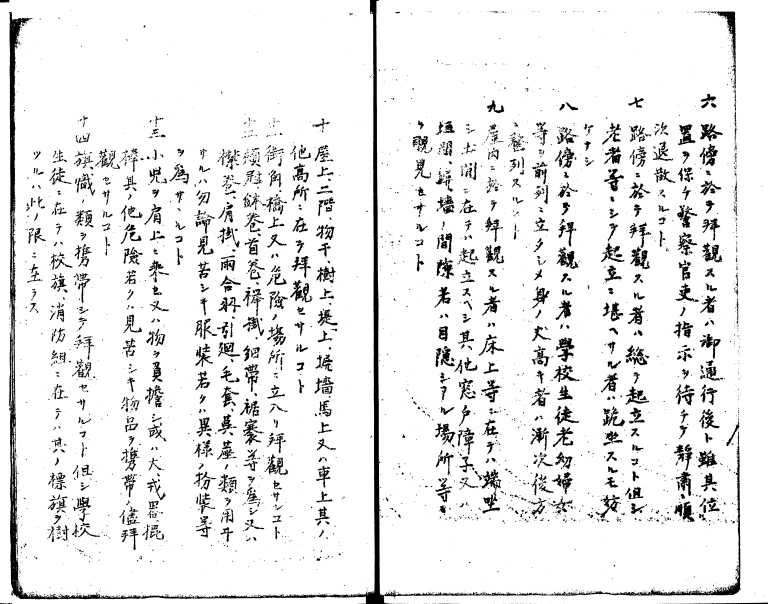 六 路傍ニ於テ拝観スル者ハ御通行後ト雖其位
置ヲ保チ警察官吏ノ指示ヲ待チテ静粛ニ順
次退散スルコト
七 路傍ニ於テ拝観スル者ハ総テ起立スルコト但シ
老者等ニシテ起立ニ堪ヘサル者ハ跪坐スルモ妨
ケナシ
八 路傍ニ於テ拝観スル者ハ学校生徒老幼婦女
等ヲ前列ニ立タシメ身ノ丈高キ者ハ漸次後方
ニ整列スルコト
九 屋内ニ於テ拝観スル者ハ床上等ニ在テハ端坐
シ土間ニ在テハ起立スヘシ其他窓戸障子又ハ
垣間、塀墻ノ間隙若ハ目隠シアル場所等ヨ
リ覗見セサルコト
十 屋上、二階、物干樹上、堤上、塀墻、馬上又ハ車上其ノ
他高所ニ在テ拝観セサルコト
十一 街角、橋上又ハ危険ノ場所ニ立入リ拝観セサルコト
十二 頬冠鉢巻、首巻、襷掛、細帯、裾褰等ヲ為シ又ハ
襟巻、肩掛、雨合羽、引廻、毛套、茣蓙ノ類ヲ用ヰ
サルハ勿論見苦シキ服装若クハ異様ノ扮装等
ヲ為サヽルコト
十三 小児ヲ肩上ニ乗セ又ハ物ヲ負擔シ或ハ犬、戎器、棍
棒其ノ他危険若クハ見苦シキ物品ヲ携帯ノ儘拝
観セサルコト
十四 旗幟ノ類ヲ携帯シテ拝観セサルコト但シ学校
生徒ニ在テハ校旗、消防組ニ在テハ其ノ標旗ヲ樹
ツルハ此ノ限ニ在ラス